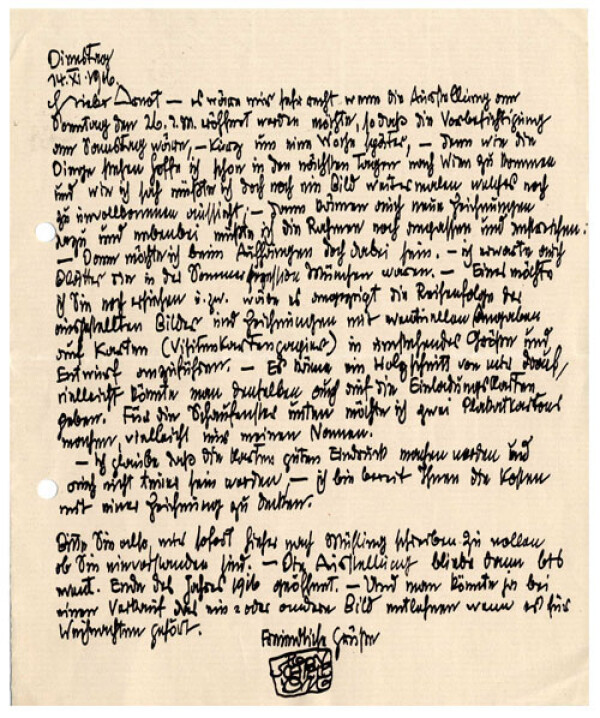 Dienstag
14. XI. 1916.
Lieber Arnot – es wäre mir sehr recht wenn die Ausstellung am
Sonntag den 26. d.M. eröffnet werden möchte, so daß die Vorbesichtigung
am Samstag wäre, – kurz um eine Woche später, – denn wie die
Dinge stehen hoffe ich schon in den nächsten Tagen nach Wien zu kommen
und wie ich sah müßte ich doch noch ein Bild weitermalen welches noch
zu unvollkommen aussieht; – Dann können auch neue Zeichnungen
dazu und nebenbei müßte ich die Rahmen noch anpassen und anstreichen.
– Dann möchte ich beim Aufhängen doch dabei sein. – ich erwarte auch
Blätter die in der Sommersezession München waren. – Eines möchte
ich Sie noch ersuchen u. zw. wäre es angezeigt die Reihenfolge der
ausgestellten Bilder und Zeichnungen mit eventuellen Angaben
auf Karten (Visitenkartenpapier) in entstehender Größe und
Entwurf anzuführen. – Es käme ein Holzschnitt von mir drauf,
vielleicht könnte man denselben auch auf die Einladungskarten
geben. Für die Schaufenster unten möchte ich zwei Plakatkartons
machen, vielleicht mit meinen Namen.
– Ich glaube daß die Karten guten Eindruck machen werden und
auch nicht teuer sein werden, – ich bin bereit Ihnen die Kosten
mit einer Zeichnung zu decken.
Bitte Sie also, mir sofort hieher nach Mühling schreiben zu wollen
ob Sie einverstanden sind. – Die Ausstellung bliebe dann bis
Ende des Jahres 1916 geöffnet. – Und man könnte ja bei
einem Verkauf das ein o oder andere Bild entlehnen wenn es für
Weihnachten gehört.
Freundliche Grüße
EGON
SCHIELE